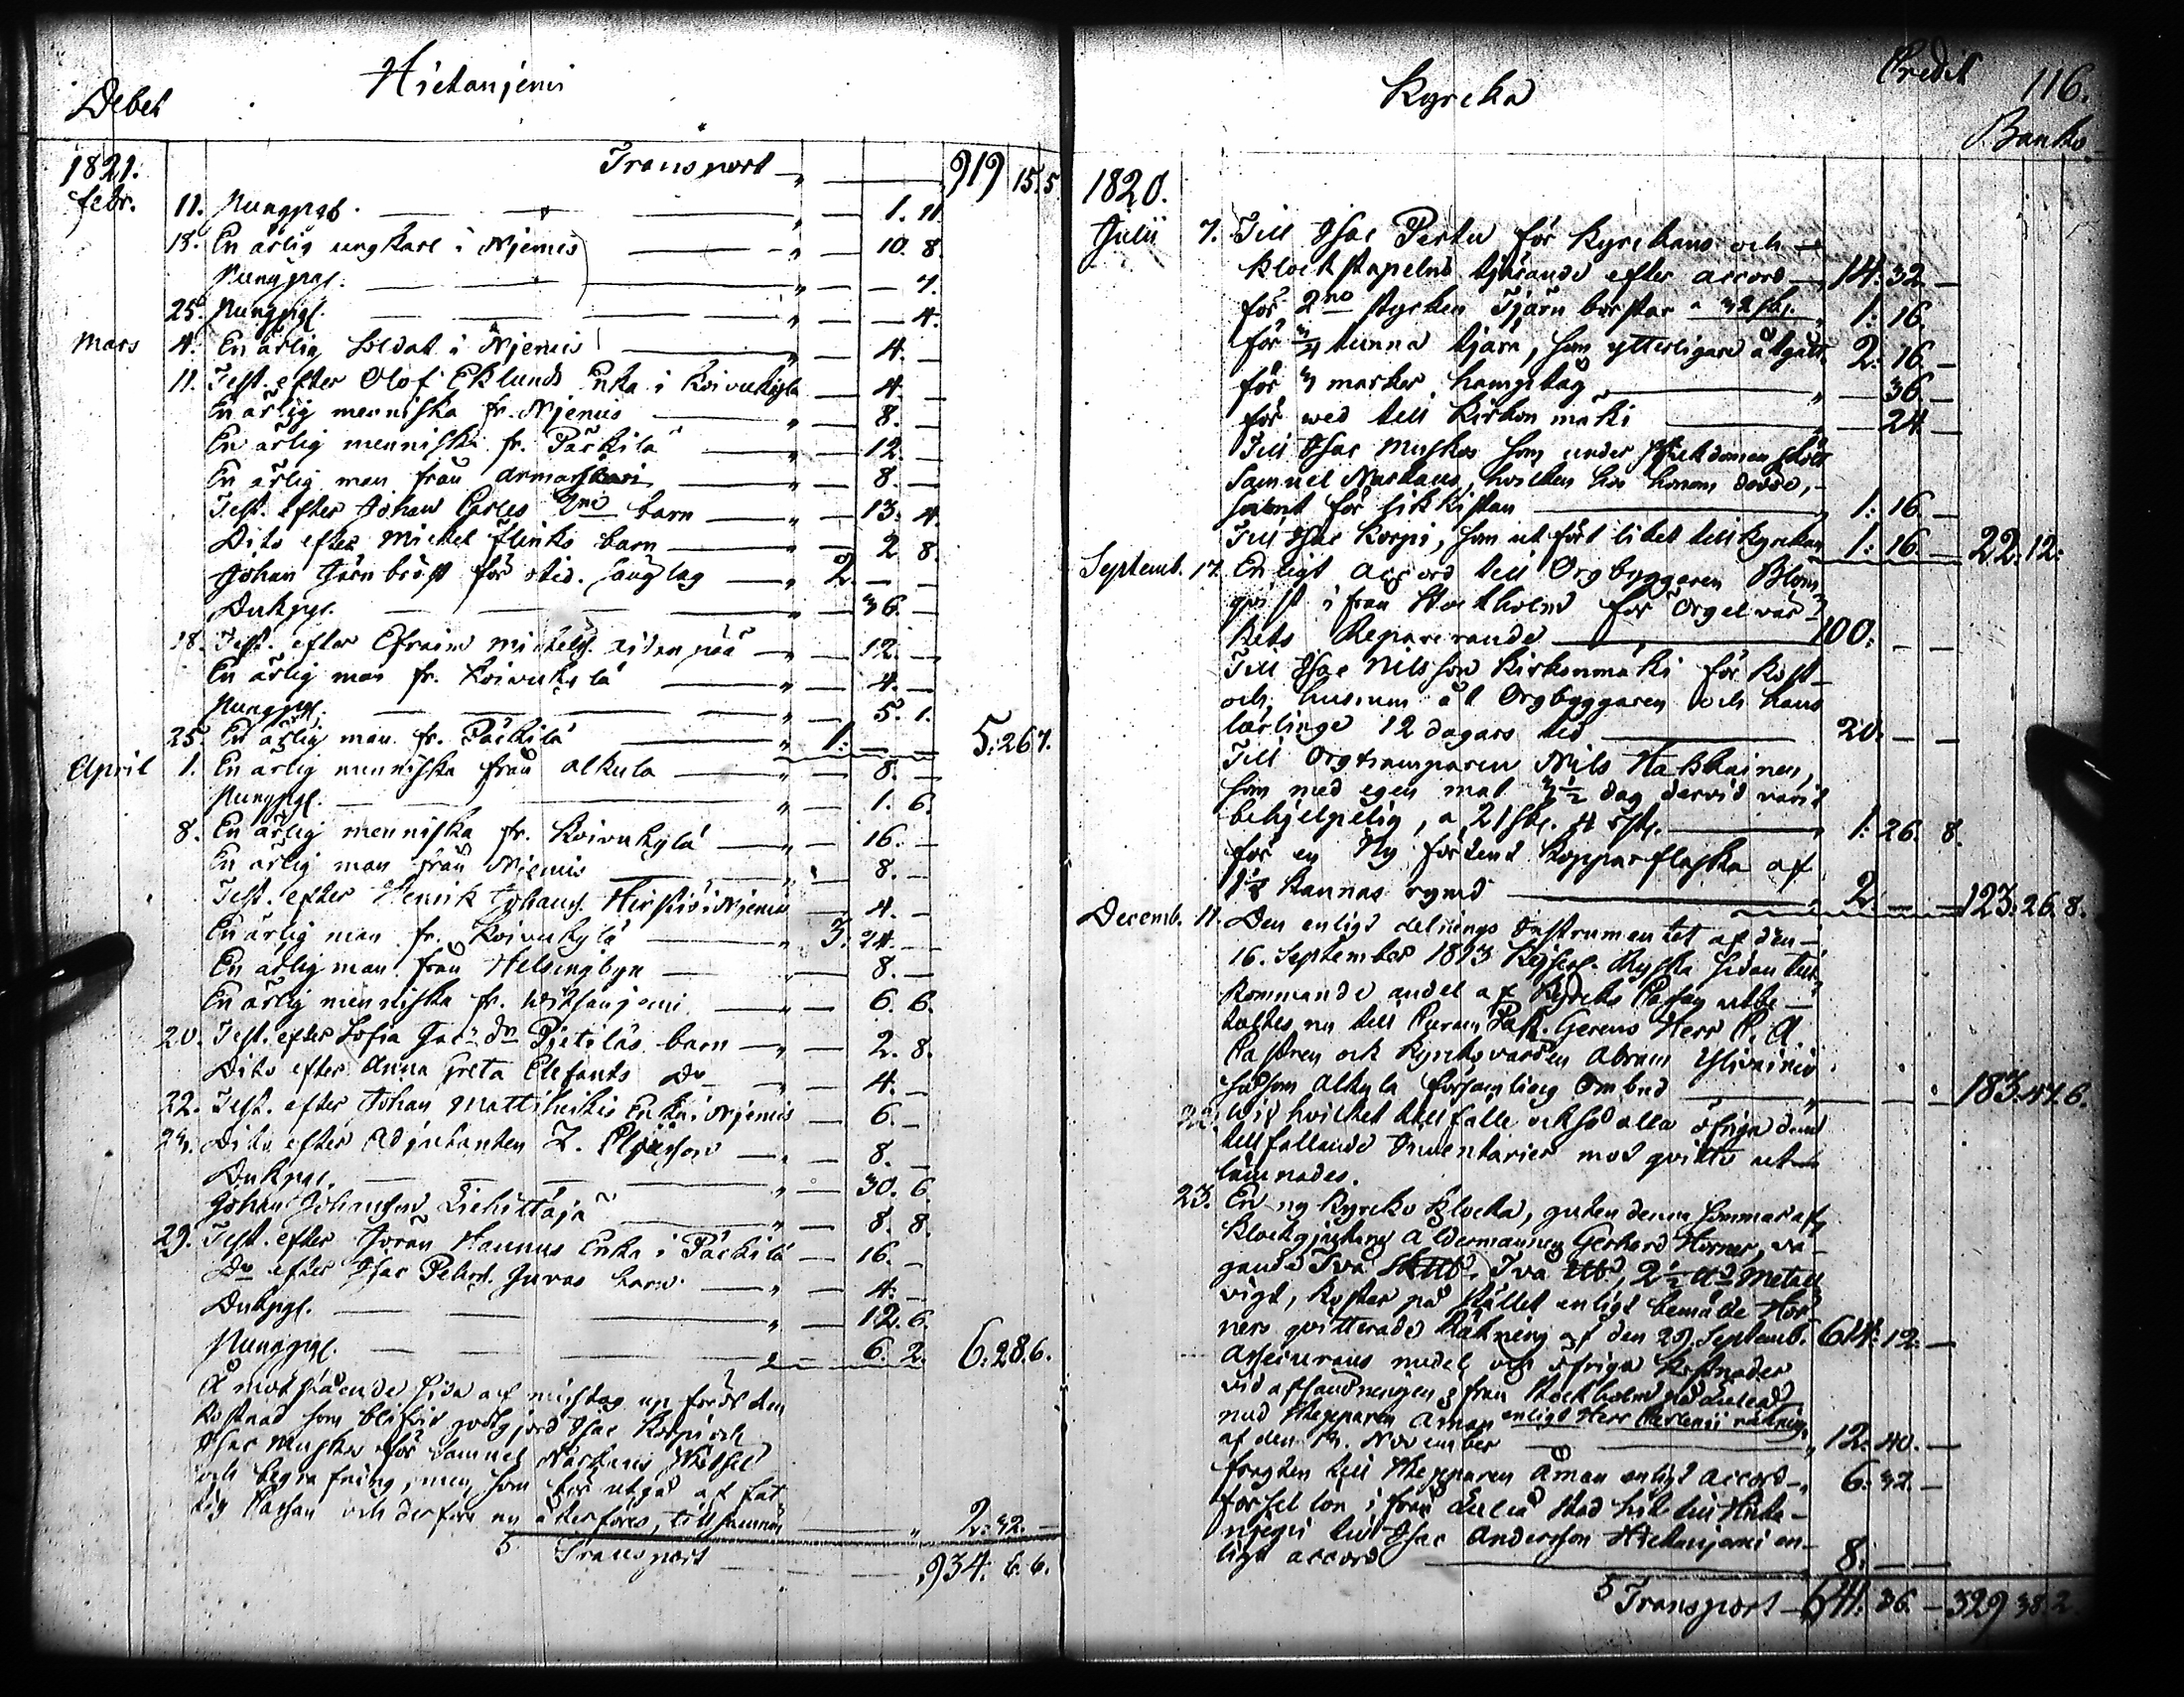 Debet Hietaniemi
1821. Transport 919 15. 5
Febr. 11. Pungpgr. 1. 11.
18. En ärlig ungkarl i Njemis 10. 8.
Pungpgr. 7.
25. Pungpgr. 4.
Mars 4. En ärlig Soldat i Njemis 4. —
11. Test. efter Olof Eklunds Enka i Koivukylä 4. —
En ärlig menniska fr. Njemis 8. —
En ärlig menniska fr. Päckilä 12. —
En ärlig man från 8. —
Test. efter Johan Carles 2ne barn 13. 4.
Dito efter Mickel Flinks barn 2 8.
Johan Järnbröst för lag 2. — —
36. —
18. Test. efter Efraim Mickels. 12. —
En ärlig man fr. Koivukylä 4. —
Pungpgr. 5. 1.
25. En ärlig man fr. Päckilä 1: — — 5: 26 7.
April 1. En ärlig menniska från Alkula 8. —
Pungpgr. 1. 6.
8. En ärlig menniska fr. Koivukylä 16. —
En ärlig man från Njemis 8. —
Test. efter Henrik Johans. i Njemis 4. —
En ärlig man fr. Koivukylä 3. 24. —
En ärlig man från Helsingbyn 8. —
En ärlig menniska fr. 6. 6.
20. Test. efter Sofia Jac:dr Pietiläs barn 2. 8.
Dito efter Anna Greta Elefants Do 4. —
22. Test. efter Johan Mattiheikis Enka i Njemis 6. —
Dito efter Adjutanten Z. 8. —
30. 6.
Johan Johansson 8. 8.
29. Test. efter Jöran Hannus Enka i Päckilä 16. —
Do efter Isac Peters. Juvas barn 4. —
12. 6.
Pungpgr. 6. 2. 6. 28. 6.
Å motstående sida af misstag uppfördt den
kostnad som blifvit godtgjord Isac Korpi och
Isac Muskos för Samuel Närkens
och begrafning, men som för utgå af fat
tig Cassan och derföre nu återföres, tillsamman 2. 32. —
5 Transport 934. 6. 6.
Kyrcka Credit 116.
Banko.
1820.
Julii 7. Till Isac Pertu för Kyrckans och
klockstapelns tjärande efter accord 14: 32 —
för 2ne stycken Tjäru borstar a 32 sk. 1: 16.
för 3/4 tunna tjära, som ytterligare åtgått 2: 16 —
för 3 marker hamptåg 36. —
för wed till Kirkon mäki 24 —
Till Isac Muskos som under sjukdomen skött
Samuel Närkens, hvilken hos honom dödde,
samt för likkistan 1: 16. —
Till Isac Korpi, som utfört liket till Kyrckan 1: 16 — 22: 12:
Septemb. 17. Enligt Accord till Orgbyggaren Blom
qvist ifrån Stockholm för Orgelvär
kets Reparerande 100: — —
Till Isac Nilsson Kirkonmäki för kost
och husrum åt Orgbyggaren och hans
lärlinge 12 dagars tid 20. — —
Till Orgtramparen Nils Hackkainen,
som med egen mat 3 1/2 dag dervid varit
behjelpelig, a 21 sk. 4 r. 1: 26. 8.
för en Ny förtent kopparflaska af
1 1/2 kannas rymd 2: — — 123: 26. 8.
Decemb. 11. Den enligt delnings Instrumentet af den
16. September 1813 Kejserl. Ryska sidan till
kommande andel af Kyrcks Cassan utbe
taltes nu till Curam Past. Gerens Herr P. A.
Castren och Kyrckovärden Abram Ylivainio
såsom Alkula församling Ombud 183. 47. 6.
22. Wid hvilket tillfälle också alla öfriga dem
tillfallande Inventarier mot qvitto ut
lämnades.
23. En ny kyrcko klocka, guten denna sommar af
klockgjutaren Åldermannen Gerhard Horner, vä
gande Två Skttd. Två 2 1/2 Metall
vigt, kostar på stället enligt bemälde Hor
ners qvitterade Räkning af den 29. Septemb. 614: 12. —
Assecurans medel och öfriga kostnader
vid afsändningen från Stockholm på Luleå
med Skepparen Åman enligt Herr räkning
af den 14. November 12. 40. —
fragten till Skepparen Åman enligt accord 6: 32. —
forsel lön ifrån Luleå stad hit till Hieta
niemi till Isac Andersson Hietaniemi en
ligt accord 8: — —
5 Transport 641. 36. — 329 38. 2